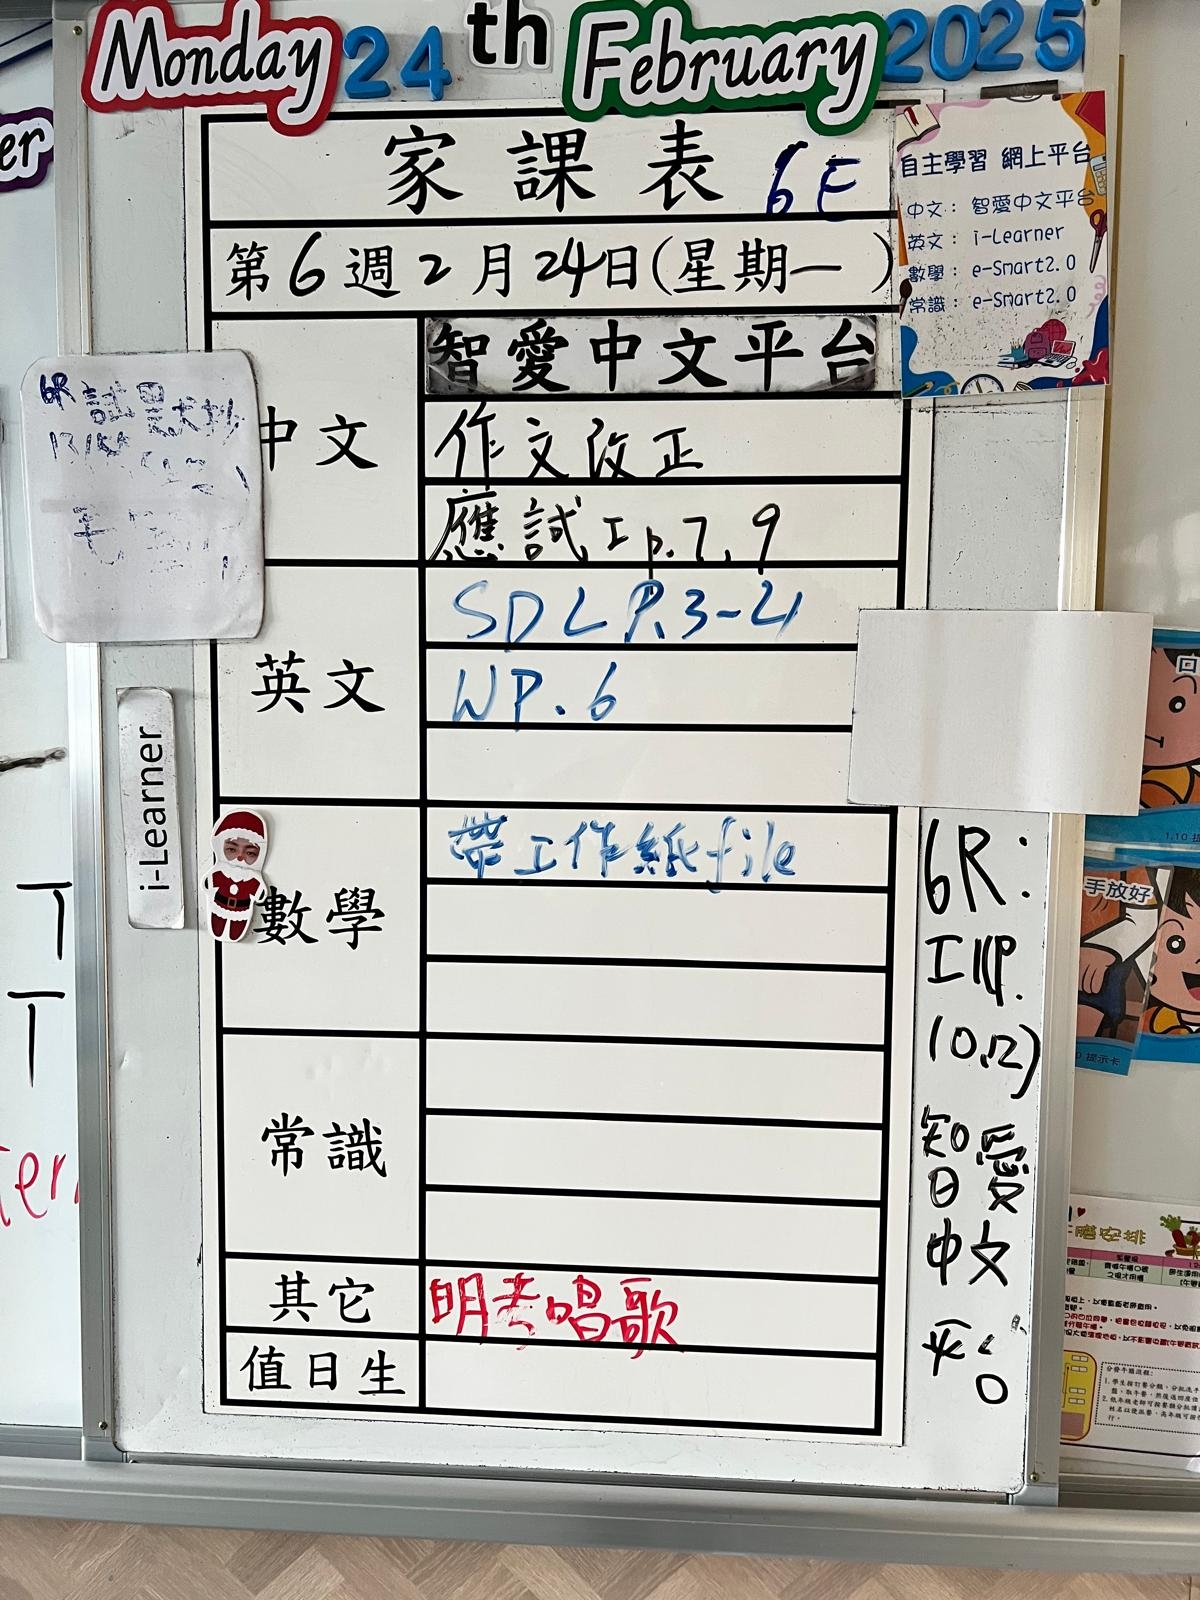 Monday 24th February 2025
家課表 6E
第6週2月24日(星期一)
自主學習 網上平台
中文: 智愛中文平台
英文: i-Learner
數學: e-Smart2.0
常識: e-Smart2.0
中文
智愛中文平台
作文改正
應試工p.7,9
6R
試
i-Learner
英文
SDL P.3-4
WP.6
數學
帶工作紙file
常識
其它
明考唱歌
值日生
6R:
工作p.
10,12)
智愛
中文
平台
er
T
T
ter
回
1,10 提
手放好
提示卡
午膳安排